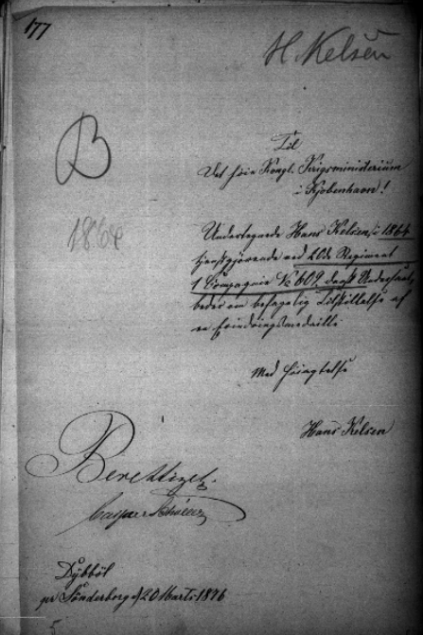 177
H. Kelsen
B
1864
Til
Det høie Kongl. Krigsministerium
i Kjøbenhavn!
Undertegnede Hans Kelsen, i 1864
ved 20de Regiment
1 Compagnie № 609 dansk
beder om Tilstillelse af
en Erindringsmedaille
Med Høiagtelse
Hans Kelsen
Berettiget.
Dybböl
pr Sönderborg d/20 Marts 1876
5